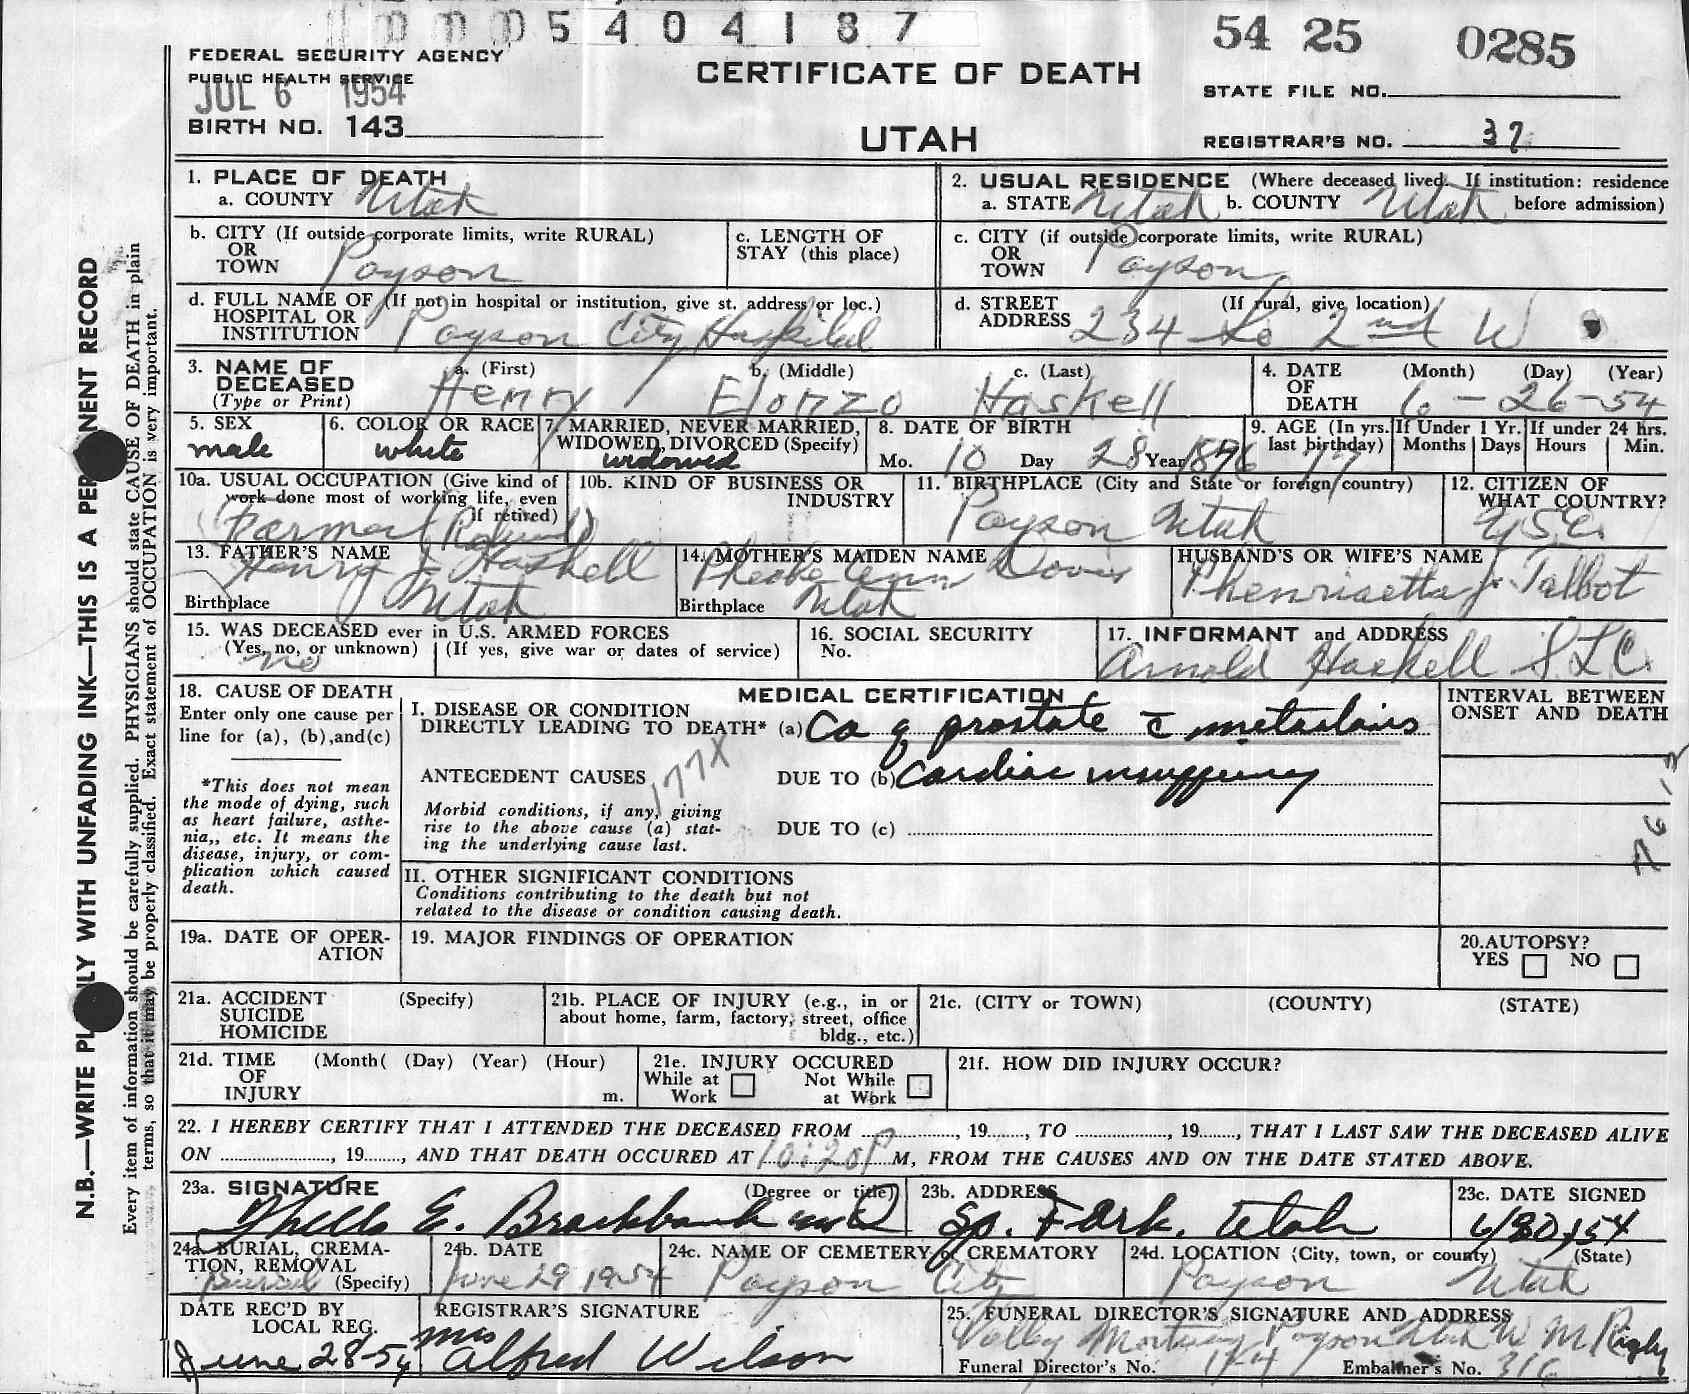 5404187
54 25 0285
FEDERAL SECURITY AGENCY
PUBLIC HEALTH SERVICE
JUL 6 1954
CERTIFICATE OF DEATH
STATE FILE NO.
BIRTH NO. 143
UTAH
REGISTRAR'S NO. 37
N.B.—WRITE PL LY WITH UNFADING INK—THIS IS A PER NENT RECORD
Every item of information should be carefully supplied. PHYSICIANS should state CAUSE OF DEATH in plain
terms, so that it may be properly classified. Exact statement of OCCUPATION is very important.
1. PLACE OF DEATH
a. COUNTY Utah
2. USUAL RESIDENCE (Where deceased lived. If institution: residence
a. STATE Utah b. COUNTY Utah before admission)
b. CITY (If outside corporate limits, write RURAL)
OR
TOWN Payson
c. LENGTH OF
STAY (this place)
c. CITY (if outside corporate limits, write RURAL)
OR
TOWN Payson
d. FULL NAME OF (If not in hospital or institution, give st. address or loc.)
HOSPITAL OR
INSTITUTION Payson City Hospital
d. STREET (If rural, give location)
ADDRESS 234 So 2nd W
3. NAME OF a. (First) b. (Middle) c. (Last)
DECEASED
(Type or Print) Henry Elonzo Haskell
4. DATE (Month) (Day) (Year)
OF
DEATH 6-26-54
5. SEX
male
6. COLOR OR RACE
white
7. MARRIED, NEVER MARRIED,
WIDOWED, DIVORCED (Specify)
widowed
8. DATE OF BIRTH
Mo. 10 Day 28 Year 1876
9. AGE (In yrs. last birthday) 77
If Under 1 Yr.
Months Days
If under 24 hrs.
Hours Min.
10a. USUAL OCCUPATION (Give kind of
work done most of working life, even
if retired)
Farmer (Retired)
10b. KIND OF BUSINESS OR
INDUSTRY
11. BIRTHPLACE (City and State or foreign country)
Payson Utah
12. CITIZEN OF
WHAT COUNTRY?
13. FATHER'S NAME
Henry J Haskell
Birthplace Utah
14. MOTHER'S MAIDEN NAME
Pheobe Ann Davis
Birthplace Utah
HUSBAND'S OR WIFE'S NAME
Phenrisetta J. Talbot
15. WAS DECEASED ever in U.S. ARMED FORCES
(Yes, no, or unknown) (If yes, give war or dates of service)
no
16. SOCIAL SECURITY
No.
17. INFORMANT and ADDRESS
Arnold Haskell S.L.C.
18. CAUSE OF DEATH
Enter only one cause per
line for (a), (b),and(c)
*This does not mean
the mode of dying, such
as heart failure, asthe-
nia,, etc. It means the
disease, injury, or com-
plication which caused
death.
MEDICAL CERTIFICATION
I. DISEASE OR CONDITION
DIRECTLY LEADING TO DEATH* (a) Ca of prostate c̄ metastasis
177X
ANTECEDENT CAUSES DUE TO (b) Cardiac insufficiency
Morbid conditions, if any, giving
rise to the above cause (a) stat-
ing the underlying cause last.
DUE TO (c)
INTERVAL BETWEEN
ONSET AND DEATH
II. OTHER SIGNIFICANT CONDITIONS
Conditions contributing to the death but not
related to the disease or condition causing death.
19a. DATE OF OPER-
ATION
19. MAJOR FINDINGS OF OPERATION
20.AUTOPSY?
YES NO
21a. ACCIDENT (Specify)
SUICIDE
HOMICIDE
21b. PLACE OF INJURY (e.g., in or
about home, farm, factory, street, office
bldg., etc.)
21c. (CITY or TOWN) (COUNTY) (STATE)
21d. TIME (Month( (Day) (Year) (Hour)
OF
INJURY m.
21e. INJURY OCCURED
While at Work Not While at Work
21f. HOW DID INJURY OCCUR?
22. I HEREBY CERTIFY THAT I ATTENDED THE DECEASED FROM , 19 , TO , 19 , THAT I LAST SAW THE DECEASED ALIVE
ON , 19 , AND THAT DEATH OCCURED AT 10:20 P M, FROM THE CAUSES AND ON THE DATE STATED ABOVE.
23a. SIGNATURE (Degree or title)
E. Brockbank M.D.
23b. ADDRESS
Sp. Fork. Utah
23c. DATE SIGNED
6/30/54
24a. BURIAL, CREMA-
TION, REMOVAL
Burial (Specify)
24b. DATE
June 29 1954
24c. NAME OF CEMETERY or CREMATORY
Payson City
24d. LOCATION (City, town, or county) (State)
Payson Utah
DATE REC'D BY
LOCAL REG.
June 28 54
REGISTRAR'S SIGNATURE
Mrs Alfred Wilson
25. FUNERAL DIRECTOR'S SIGNATURE AND ADDRESS
Valley Mortuary Payson Utah W M Rigby
Funeral Director's No. 174 Embalmer's No. 316